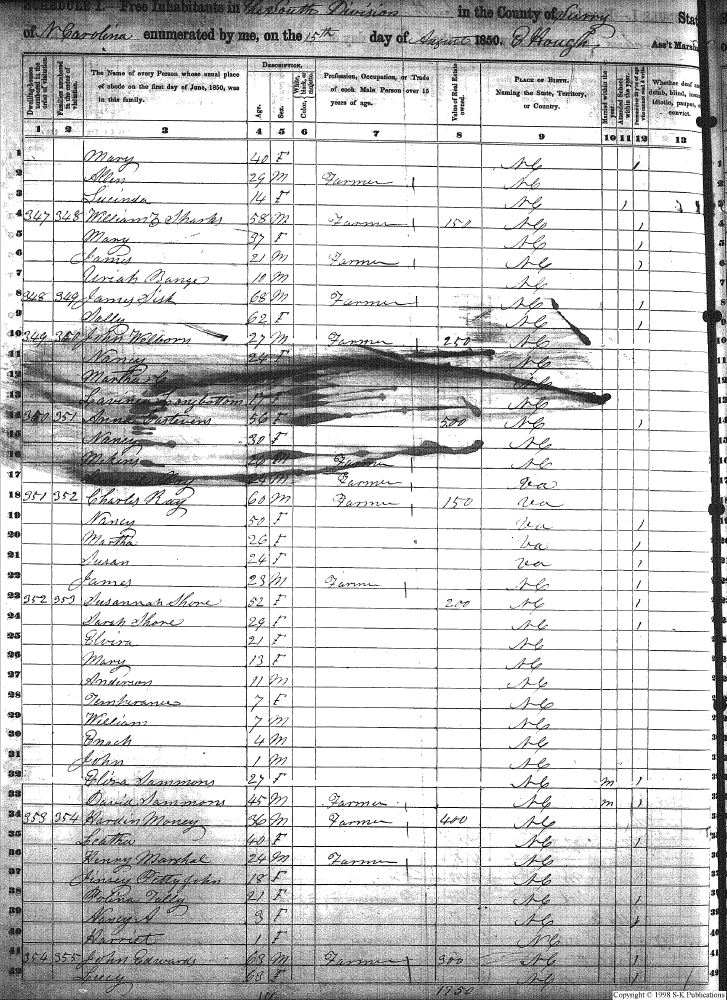 SCHEDULE I. Free Inhabitants in the South Division in the County of Surry State
of N Carolina enumerated by me, on the 15th day of August 1850. E Hough Ass't Marshal
DESCRIPTION.
Dwelling-houses numbered in the order of visitation. Families numbered in the order of visitation. The Name of every Person whose usual place of abode on the first day of June, 1850, was in this family. Age. Sex. Color, White, black, or mulatto. Profession, Occupation, or Trade of each Male Person over 15 years of age. Value of Real Estate owned. PLACE OF BIRTH. Naming the State, Territory, or Country. Married within the year. Attended School within the year. Whether deaf and dumb, blind, insane, idiotic, pauper, or convict.
1 2 3 4 5 6 7 8 9 10 11 12 13
1 Mary 40 F NC 1
2 Allen 29 M Farmer NC
3 Lucinda 14 F NC 1
4 347 348 William Sparks 58 M Farmer 150 NC 1
5 Mary 37 F NC 1
6 James 21 M Farmer NC 1
7 Uriah Bange 10 M NC
8 348 349 James Sisk 68 M Farmer NC 1
9 Sally 62 F NC 1
10 349 350 John Welborn 27 M Farmer 250 NC
11 Nancy 24 F NC
12 Martha NC
13 Longbottom 17 F NC
14 350 351 56 F 500 NC 1
15 Nancy 30 F NC
16 20 M Farmer NC
17 Ray 24 M Farmer Va
18 351 352 Charles Ray 60 M Farmer 150 Va
19 Nancy 50 F Va 1
20 Martha 26 F Va 1
21 Susan 24 F Va 1
22 James 23 M Farmer NC 1
23 352 353 Susannah Shore 52 F 200 NC 1
24 Sarah Shore 29 F NC 1
25 Elvira 21 F NC
26 Mary 13 F NC
27 Anderson 11 M NC
28 Temperance 7 F NC
29 William 7 M NC
30 Enoch 4 M NC
31 John 1 M NC
32 Eliza Sammons 27 F NC m 1
33 David Sammons 45 M Farmer NC m 1
34 353 354 Hardin Money 36 M Farmer 400 NC
35 Leatha 40 F NC 1
36 Henry Marshal 24 M Farmer NC
37 Pettyjohn 18 F NC
38 21 F NC 1
39 Nancy A 3 F NC 1
40 Harriet 1 F NC
41 354 355 John Edwards 63 M Farmer 300 NC 1
42 Lucy 63 F NC 1
1750
Copyright © 1998 S-K Publications